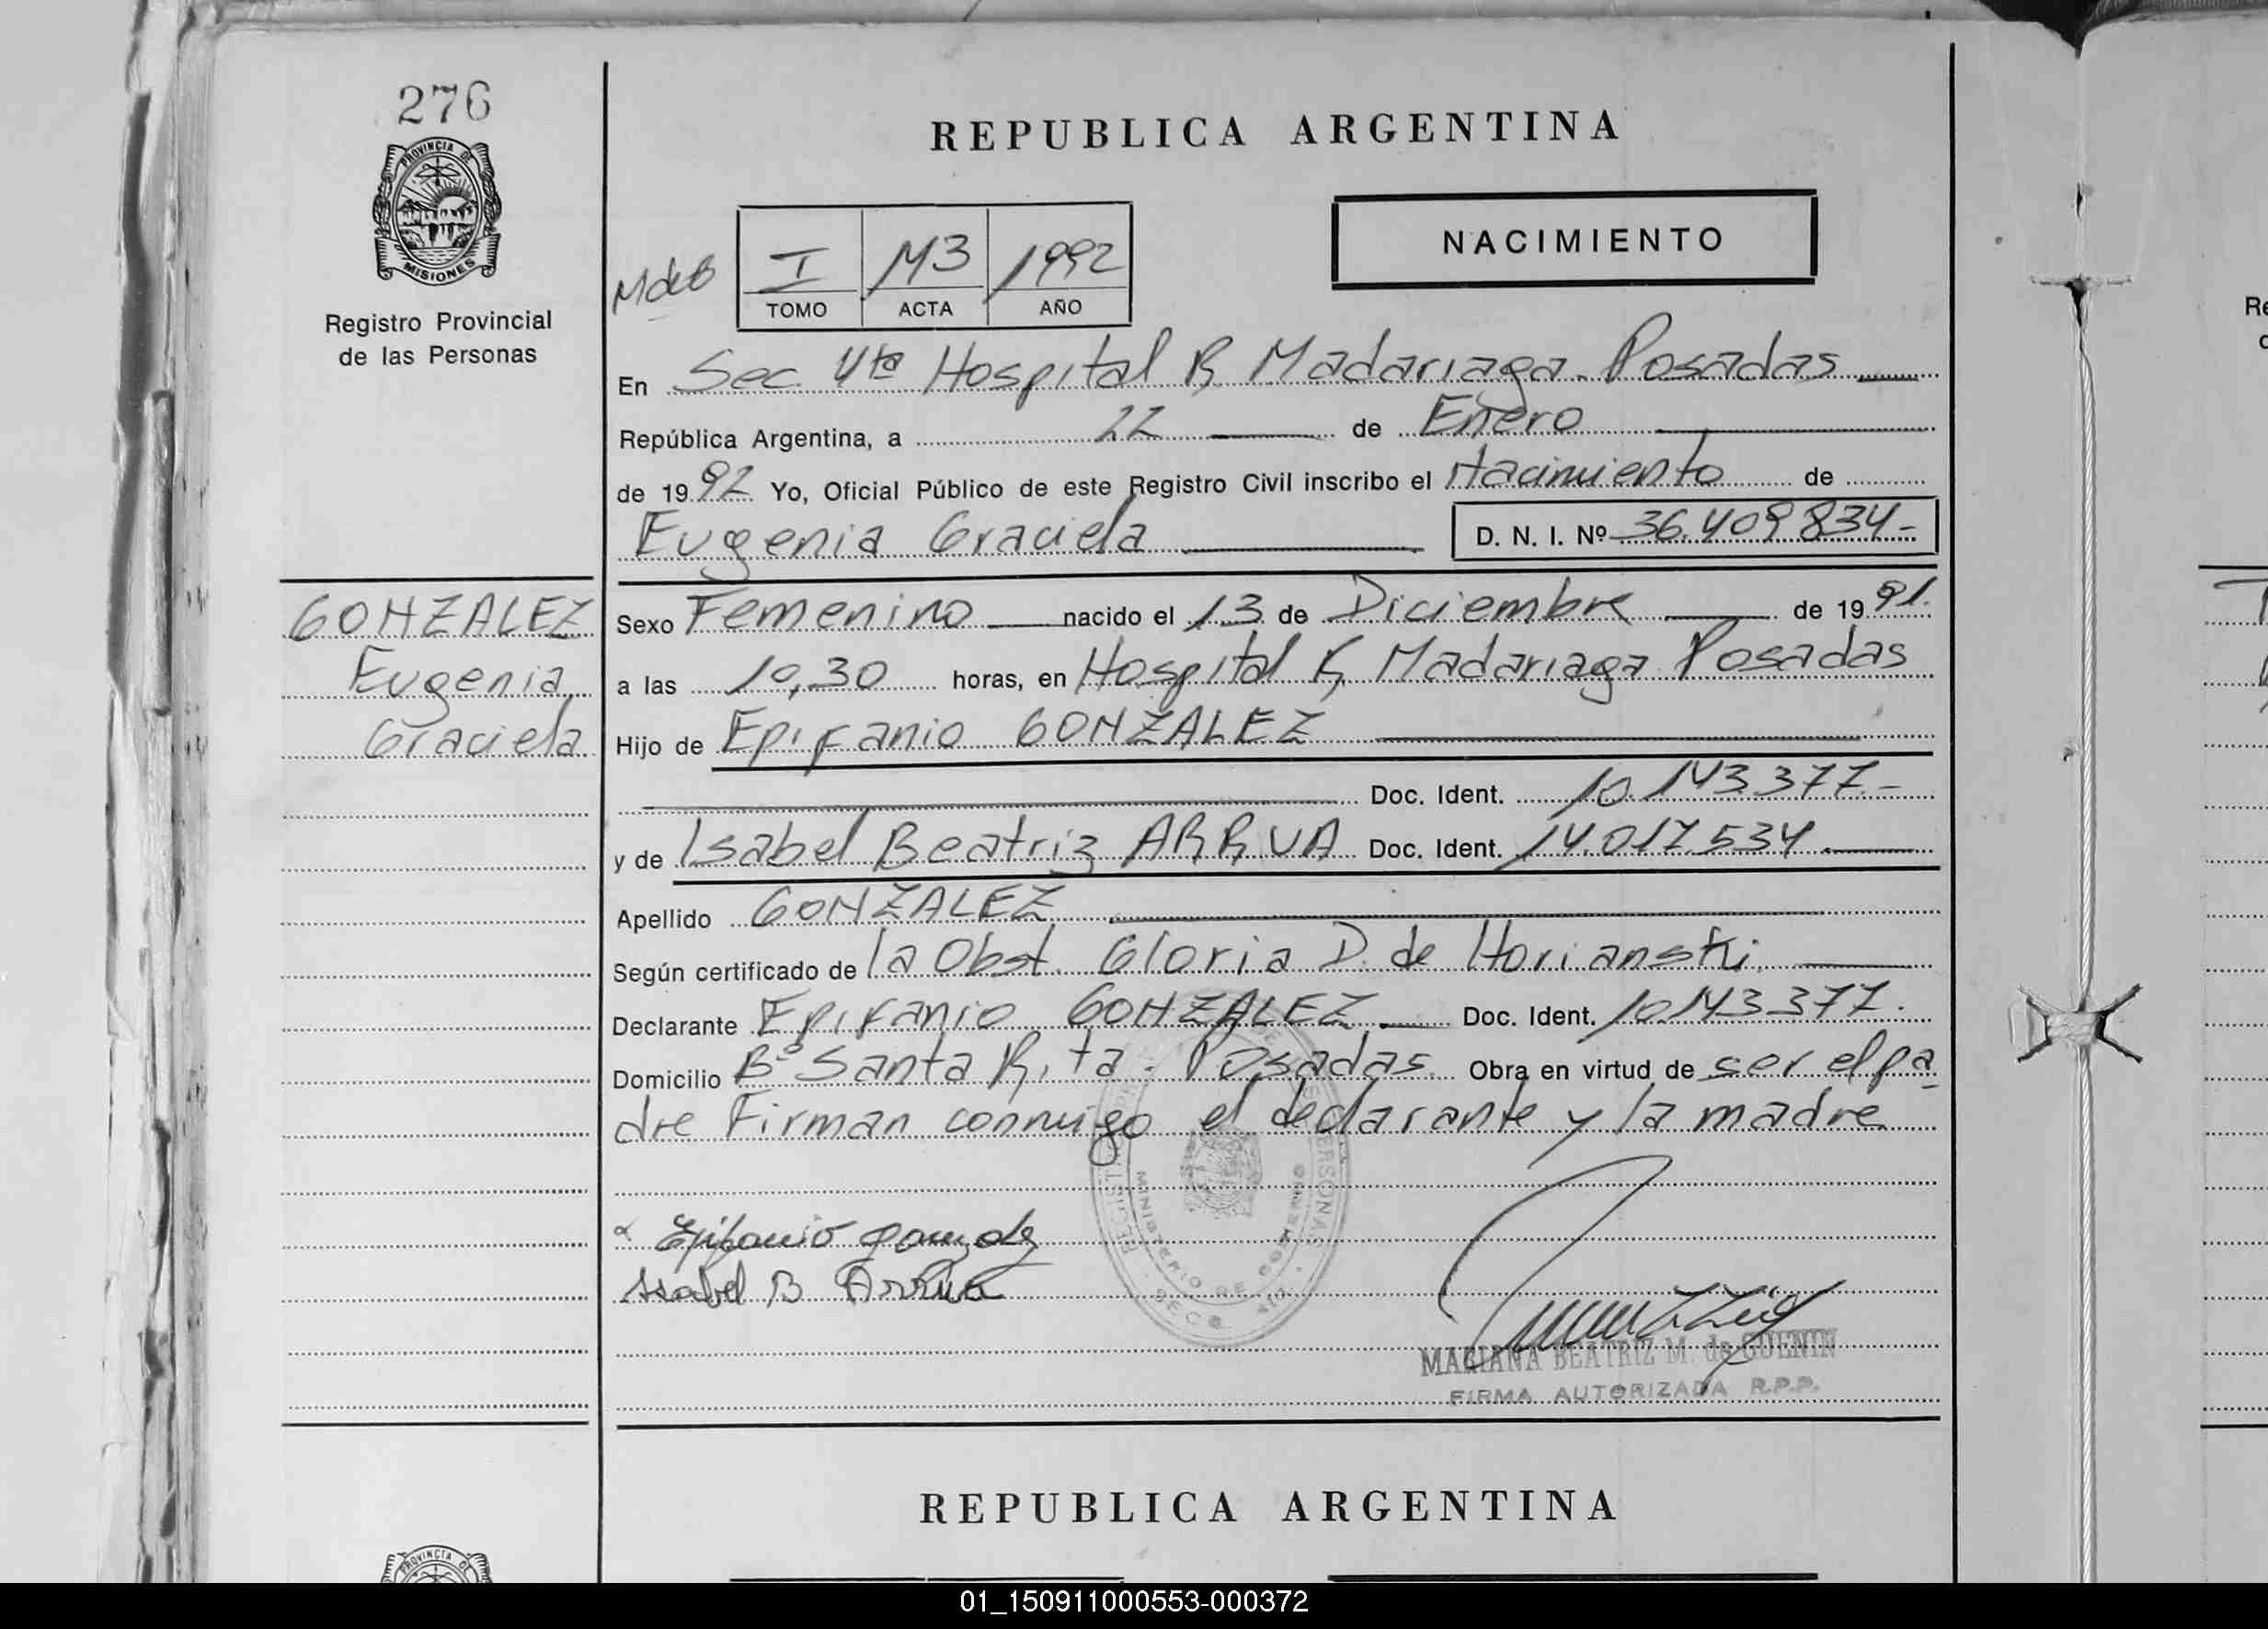 276
PROVINCIA DE
MISIONES
Registro Provincial
de las Personas
REPUBLICA ARGENTINA
NACIMIENTO
I 143 1992
TOMO ACTA AÑO
En Sec. 4ta Hospital R. Madariaga - Posadas
República Argentina, a 22 de Enero
de 1992 Yo, Oficial Público de este Registro Civil inscribo el Nacimiento de
Eugenia Graciela D. N. I. Nº 36.409.834-
GONZALEZ
Eugenia
Graciela
Sexo Femenino nacido el 13 de Diciembre de 1991.
a las 10,30 horas, en Hospital R. Madariaga Posadas
Hijo de Epifanio GONZALEZ
Doc. Ident. 10.143.377.-
y de Isabel Beatriz ARRUA Doc. Ident. 14.017.534.
Apellido GONZALEZ
Según certificado de la Obst. Gloria D. de Horianski
Declarante Epifanio GONZALEZ Doc. Ident. 10.143.377.
Domicilio Bº Santa Rita - Posadas. Obra en virtud de ser el pa
dre Firman conmigo el declarante y la madre
Epifanio Gonzalez
Isabel B Arrua
MINISTERIO DE GOBIERNO
MARIANA BEATRIZ M. de GUENIN
FIRMA AUTORIZADA R.P.P.
REPUBLICA ARGENTINA
PROVINCIA DE
01_150911000553-000372